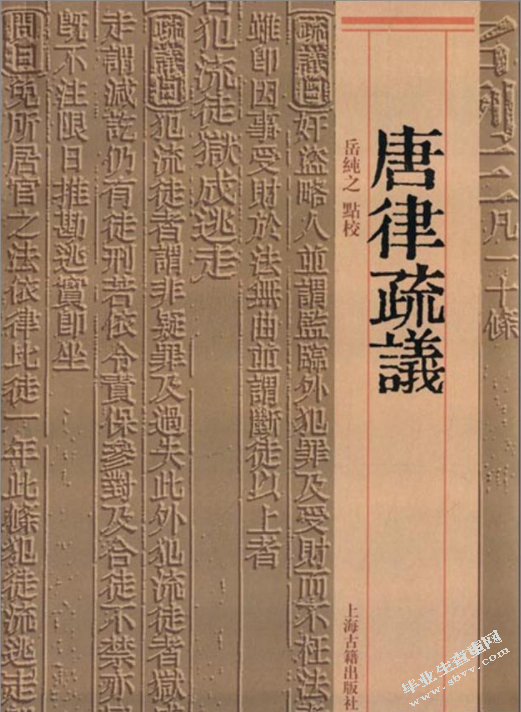 名例三 凡一十條
唐律疏議
岳純之 點校
上海古籍出版社
疏議曰奸盜略人並謂監臨外犯罪及受財而不枉法者
雖即因事受財於法無曲並謂斷徒以上者
犯流徒獄成逃走
疏議曰犯流徒者謂非疑罪及過失此外犯流徒者獄
走謂減訖仍有徒刑若依令責保參對及合徒不禁亦
既不注限日推勘逃實即坐
問曰免所居官之法依律比徒一年此條犯徒流逃走
毕业生查重网
www.sbvv.com